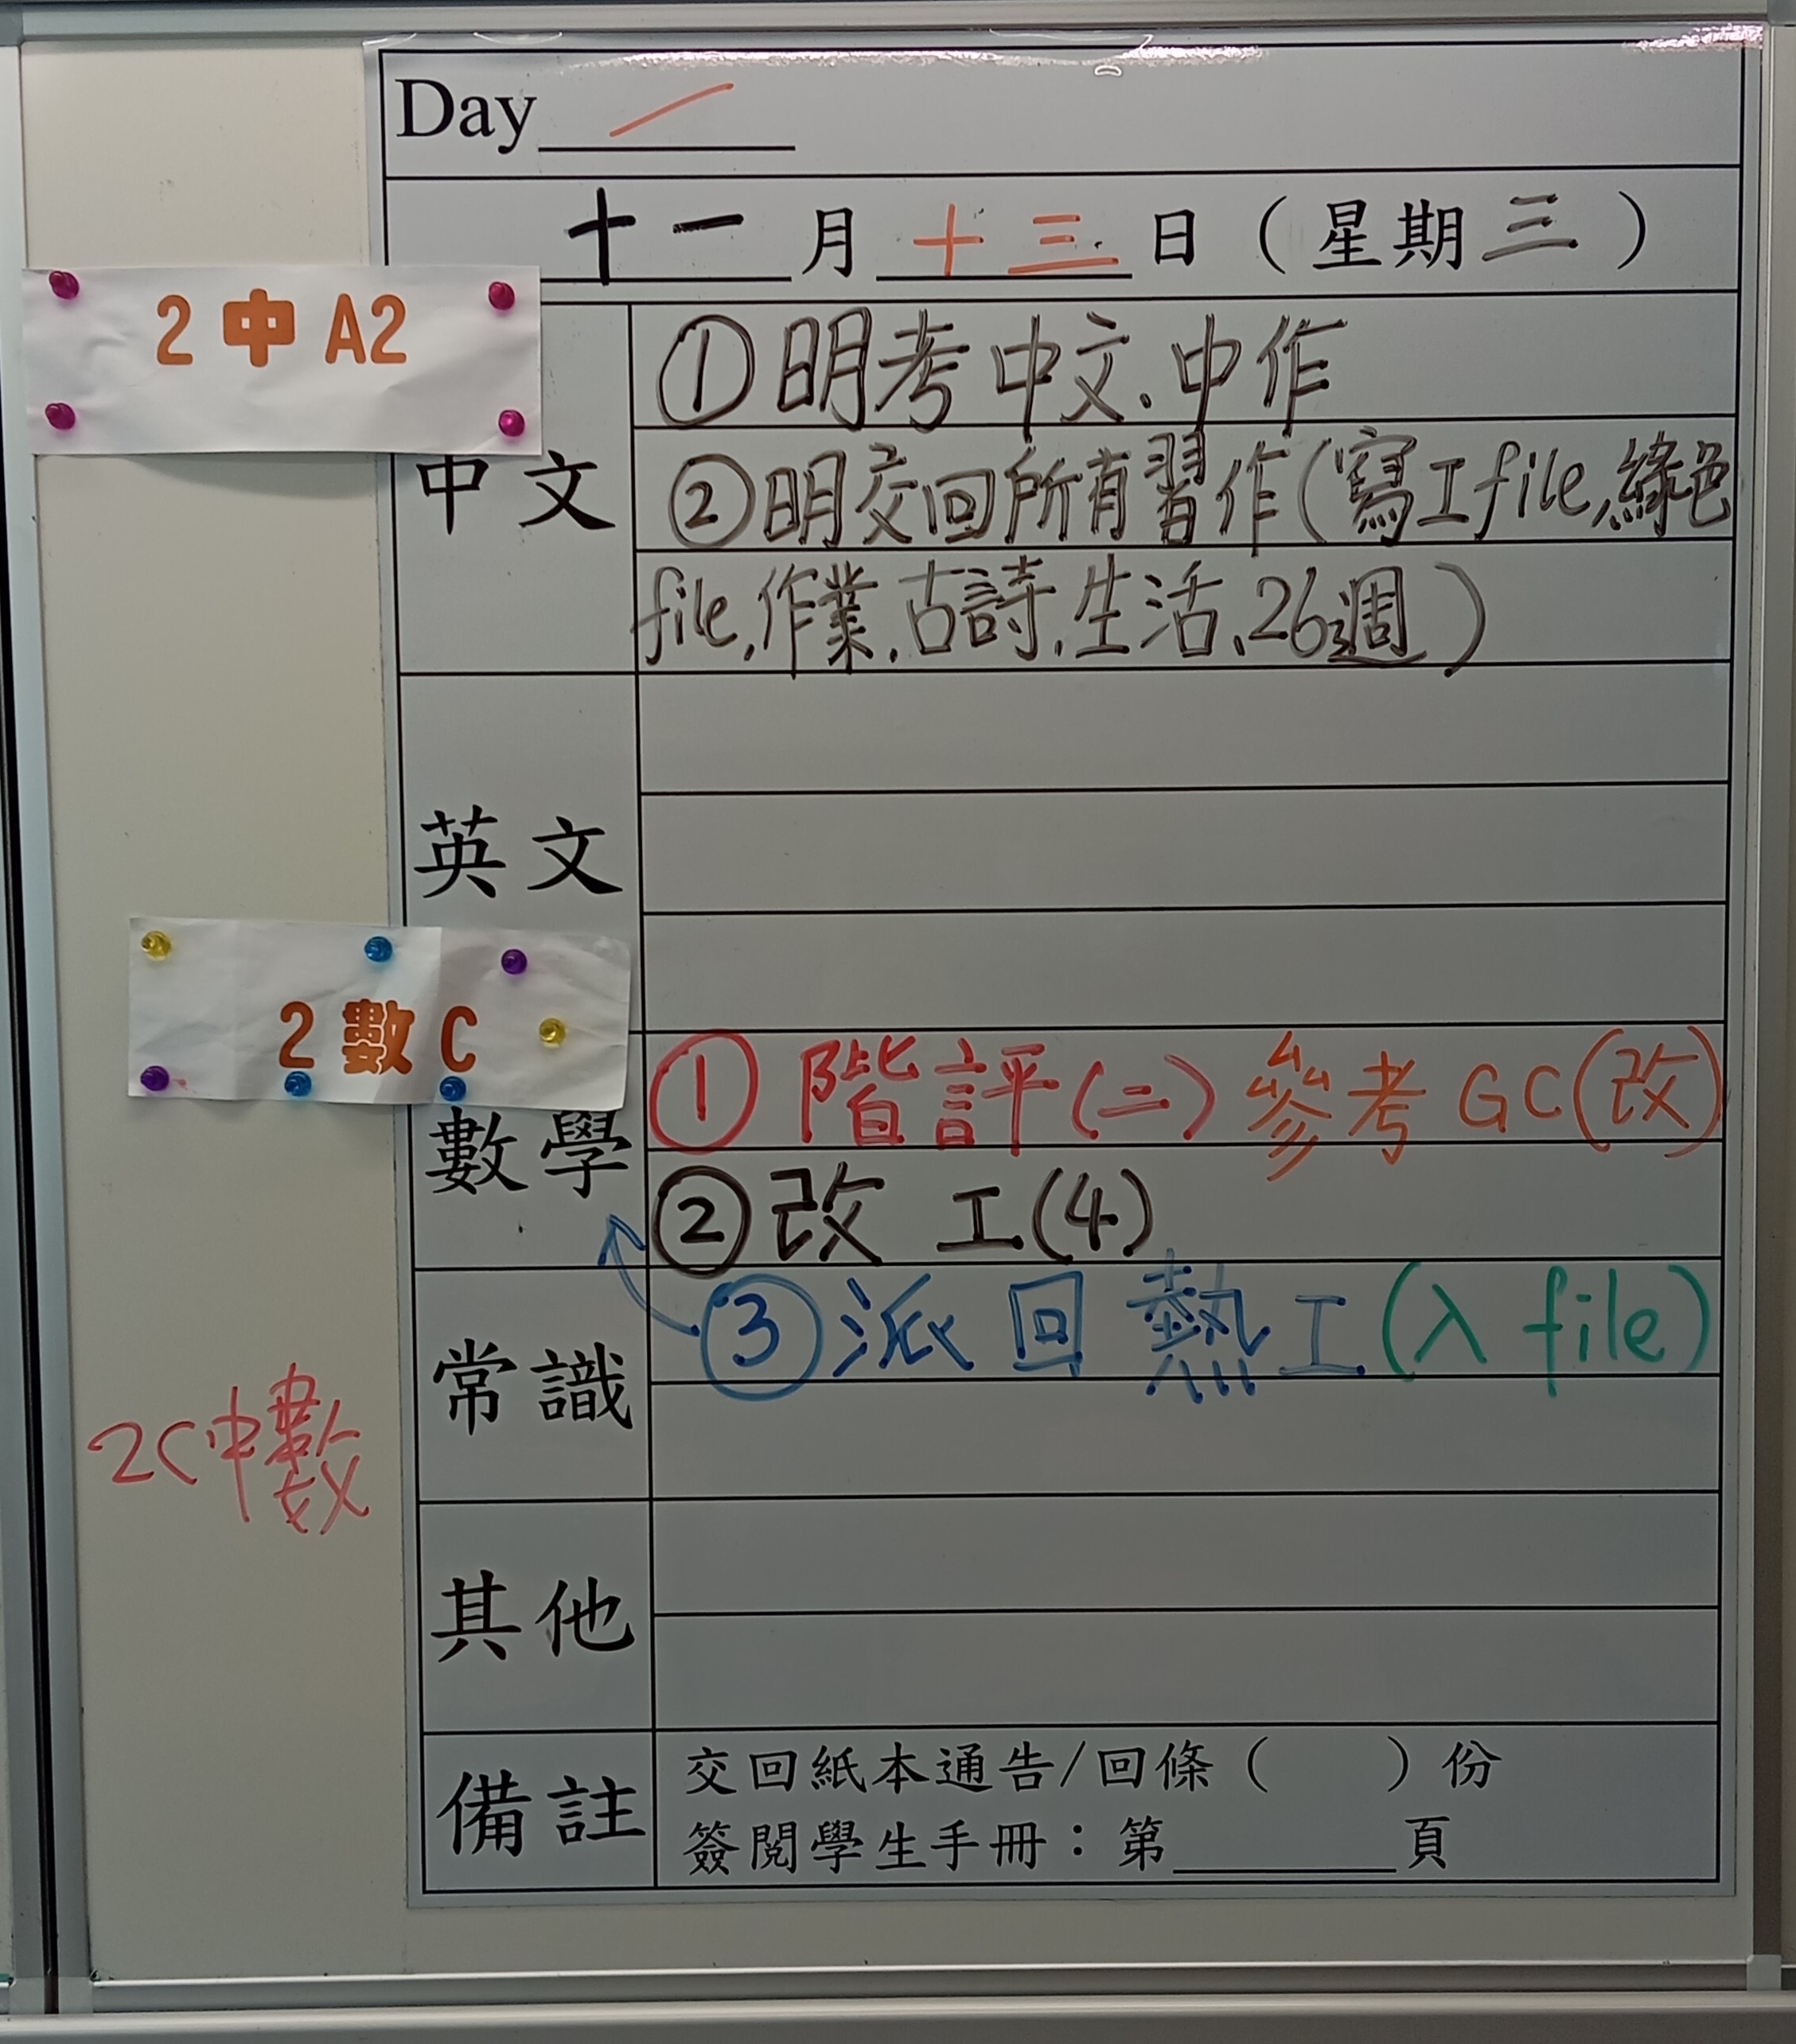 Day /
十一月十三日(星期三)
2中A2
中文
①明考中文、中作
②明交回所有習作(寫工file,綠色
file,作業,古詩,生活、26週)
英文
2數C
數學
①階評(二)參考GC(改)
②改 工(4)
③派回熱工(入file)
常識
2C中數
其他
備註
交回紙本通告/回條( )份
簽閱學生手冊:第____頁